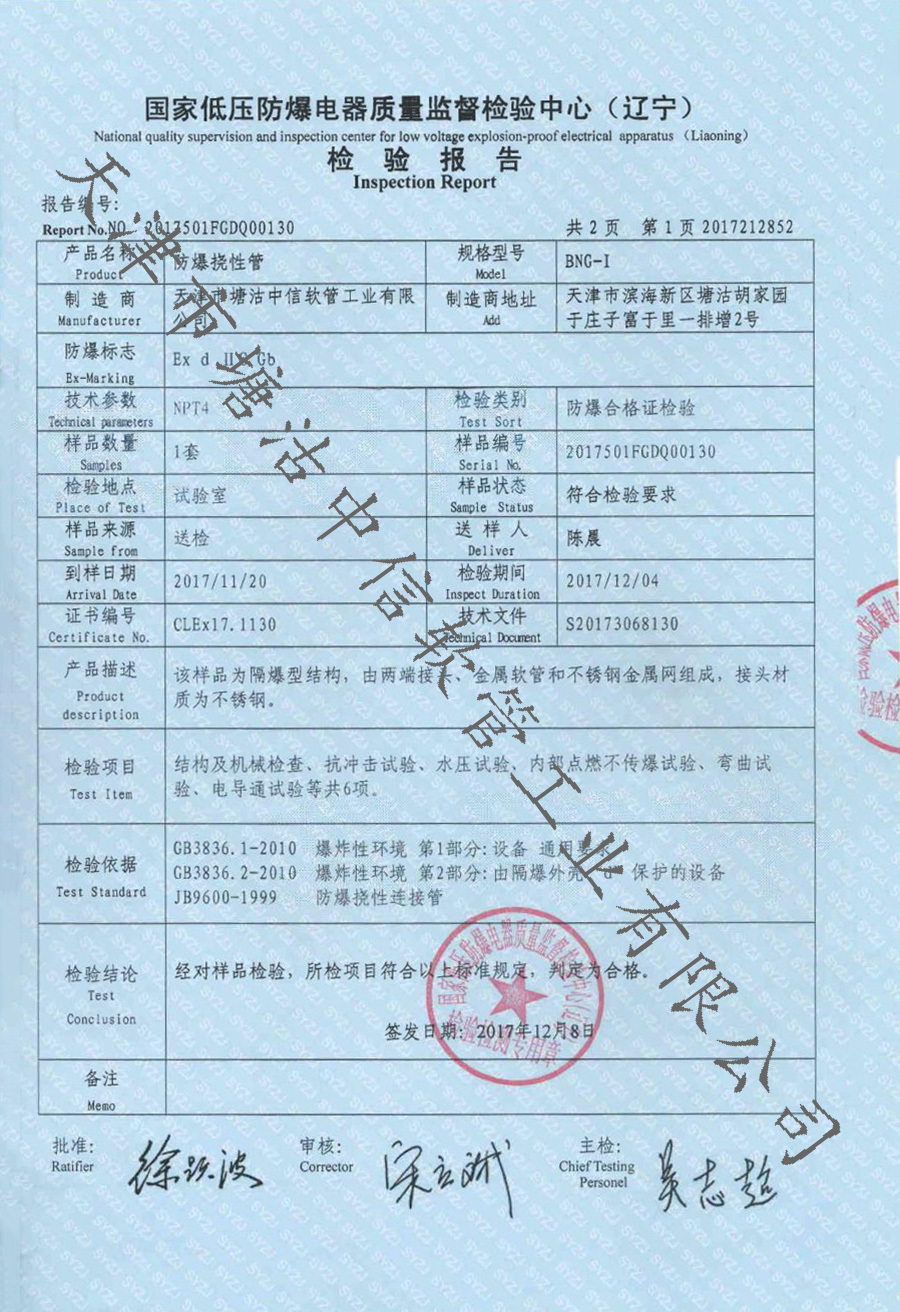 国家低压防爆电器质量监督检验中心（辽宁）
National quality supervision and inspection center for low voltage explosion-proof electrical apparatus （Liaoning）
检 验 报 告
Inspection Report
报告编号：
Report No.NO. 2017501FGDQ00130 共 2 页 第 1 页 2017212852
产品名称 防爆挠性管 规格型号 BNG-I
Product Model
制 造 商 天津市塘沽中信软管工业有限公司 制造商地址 天津市滨海新区塘沽胡家园于庄子富于里一排增2号
Manufacturer Add
防爆标志 Ex d IIC Gb
Ex-Marking
技术参数 NPT4 检验类别 防爆合格证检验
Technical parameters Test Sort
样品数量 1套 样品编号 2017501FGDQ00130
Samples Serial No.
检验地点 试验室 样品状态 符合检验要求
Place of Test Sample Status
样品来源 送检 送 样 人 陈晨
Sample from Deliver
到样日期 2017/11/20 检验期间 2017/12/04
Arrival Date Inspect Duration
证书编号 CLEx17.1130 技术文件 S20173068130
Certificate No. Technical Document
产品描述 该样品为隔爆型结构，由两端接头、金属软管和不锈钢金属网组成，接头材
Product 质为不锈钢。
description
检验项目 结构及机械检查、抗冲击试验、水压试验、内部点燃不传爆试验、弯曲试
Test Item 验、电导通试验等共6项。
GB3836.1-2010 爆炸性环境 第1部分：设备 通用要求
检验依据 GB3836.2-2010 爆炸性环境 第2部分：由隔爆外壳 保护的设备
Test Standard JB9600-1999 防爆挠性连接管
检验结论 经对样品检验，所检项目符合以上标准规定，判定为合格。
Test
Conclusion
签发日期：2017年12月8日
备注
Memo
批准： 徐跃波 审核： 主检： 吴志超
Ratifier Corrector Chief Testing
Personnel
天津市塘沽中信软管工业有限公司
国家低压防爆电器质量监督检验中心(辽宁)
检验检测专用章